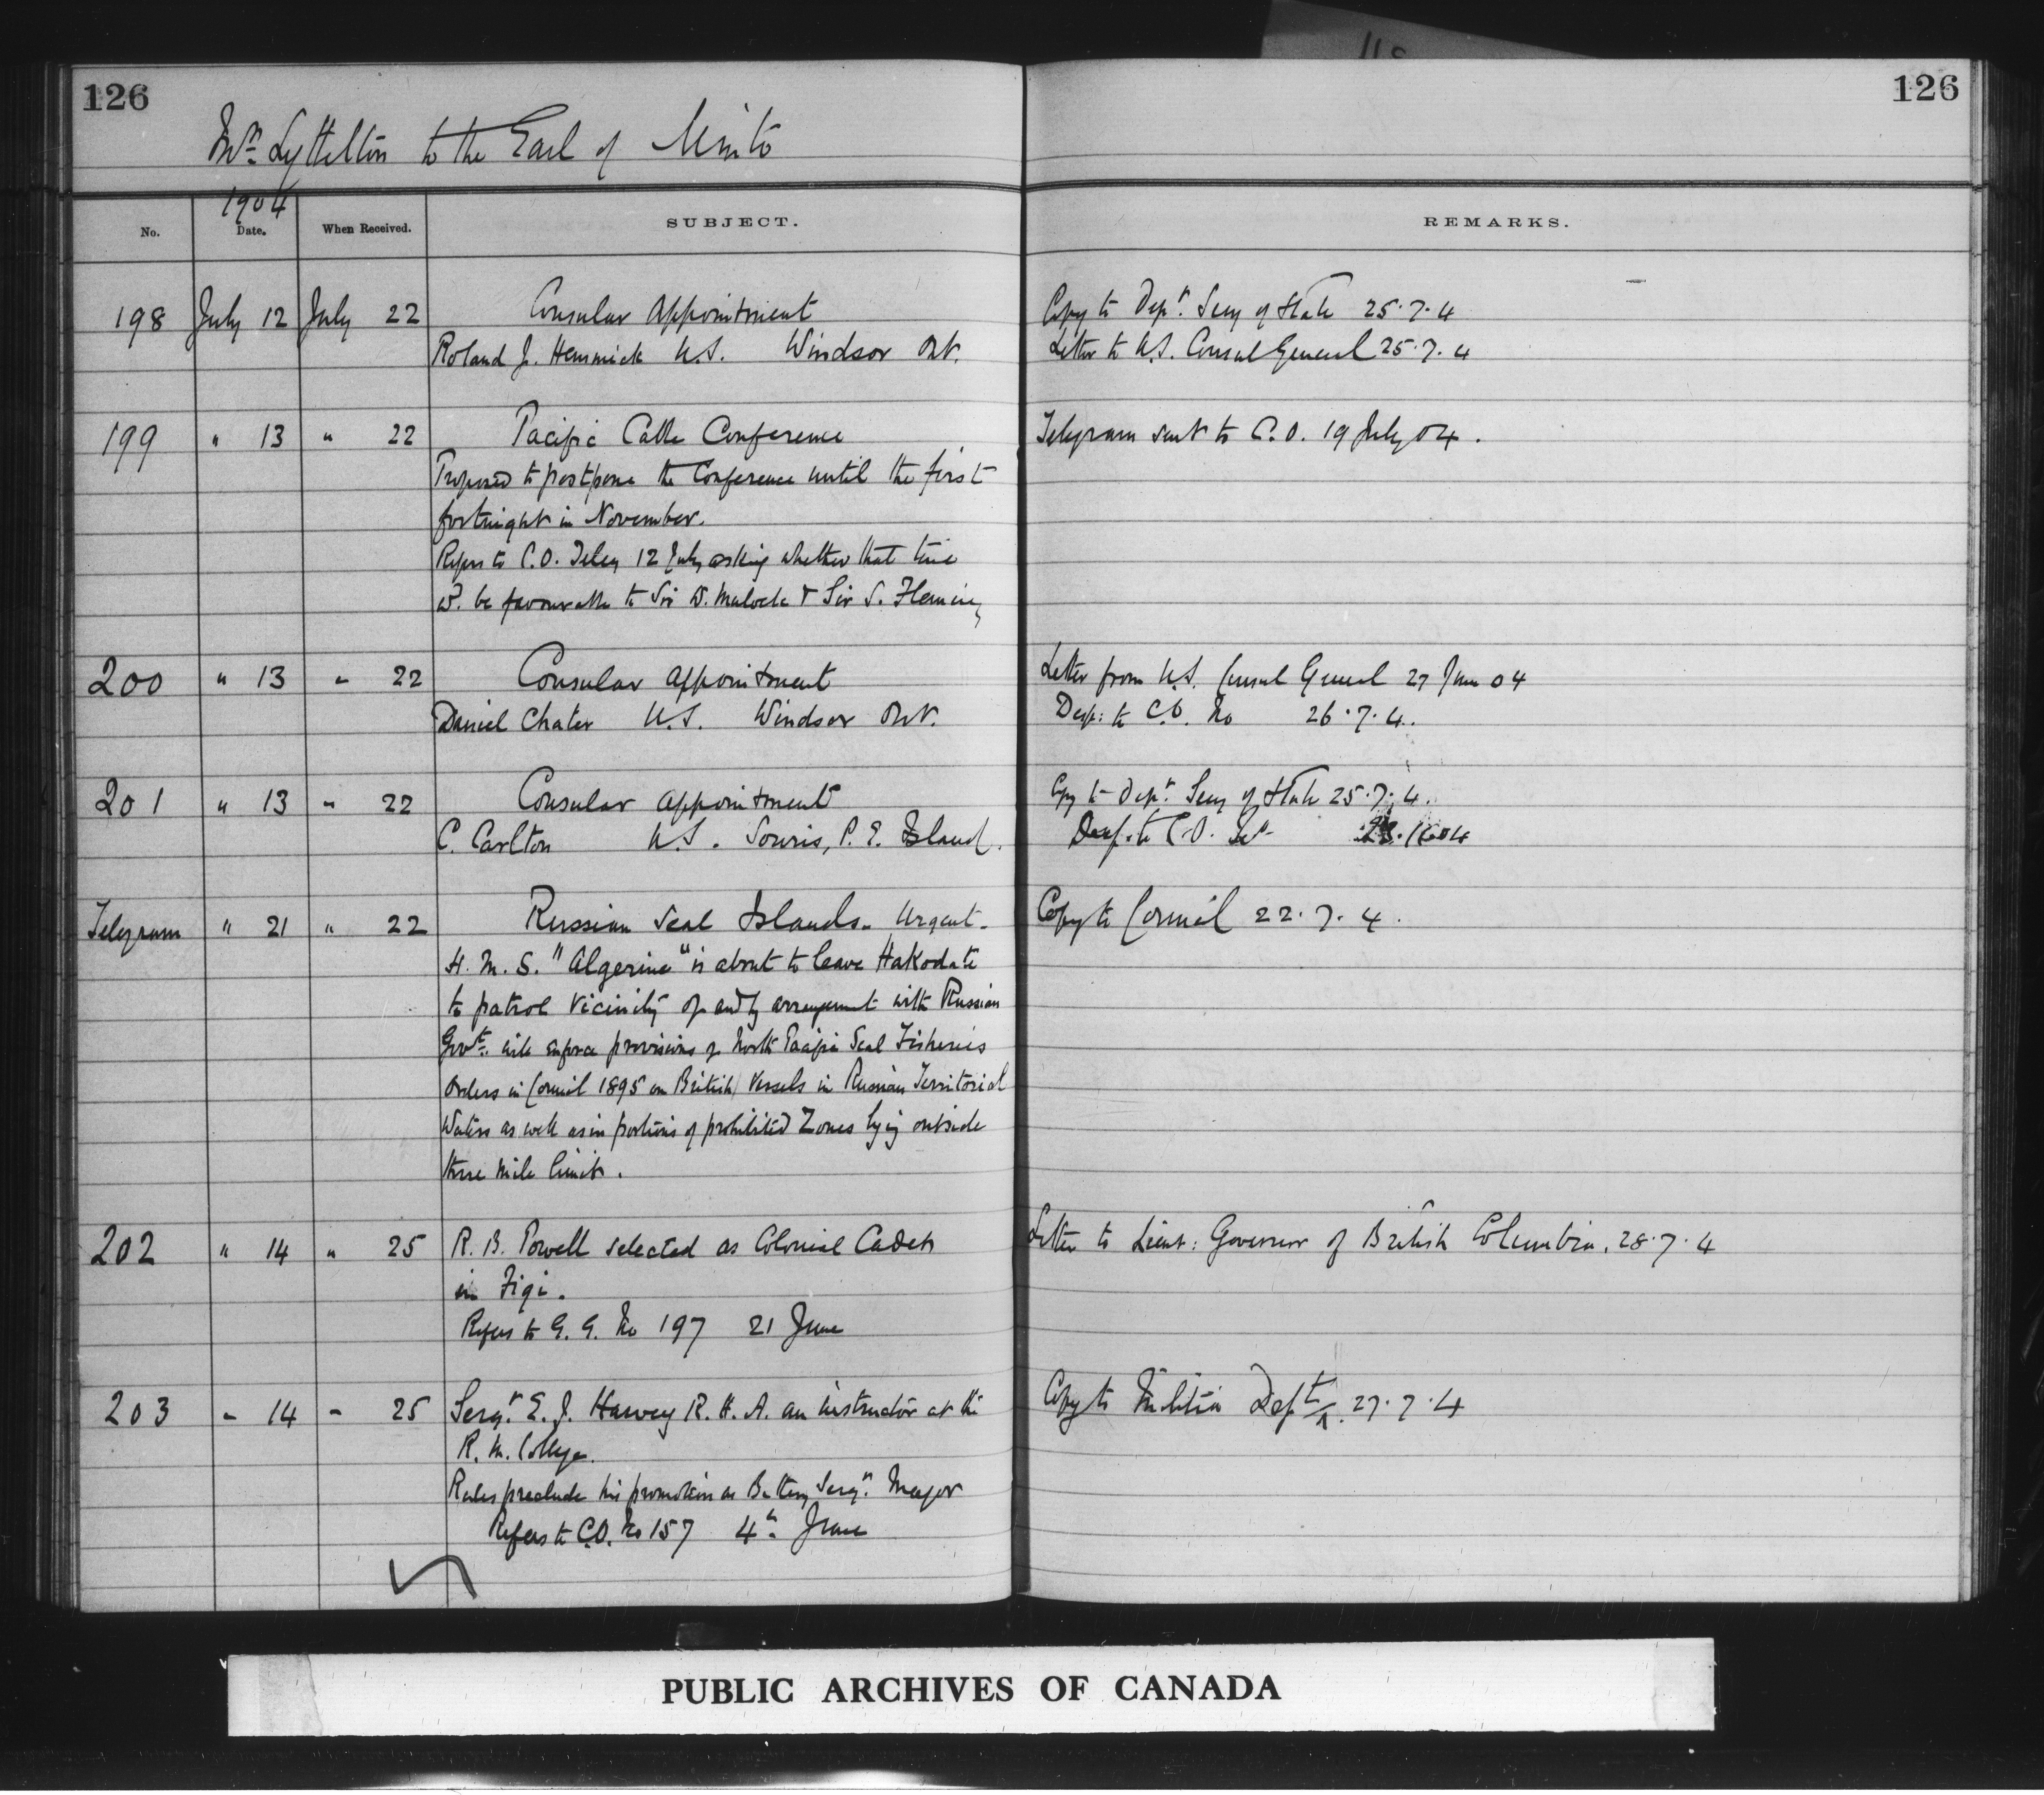 126
126
Mr. Lyttelton to the Earl of Minto
1904
No.
Date.
When Received.
SUBJECT.
REMARKS.
198 July 12 July 22 Consular Appointment
Roland J. Hemmick U.S. Windsor Ont.
Copy to Dept. Secy of State 25.7.4
Letter to U.S. Consul General 25.7.4
199 " 13 " 22 Pacific Cable Conference
Proposed to postpone the Conference until the first
fortnight in November.
Refers to C.O. Teleg 12 July asking whether that time
wd. be favourable to Sir W. Mulock & Sir S. Fleming
Telegram sent to C.O. 19 July 04.
200 " 13 " 22 Consular Appointment
Daniel Chater U.S. Windsor Ont.
Letter from U.S. Consul General 27 June 04
Desp: to C.O. No 26.7.4.
201 " 13 " 22 Consular Appointment
C. Carlton U.S. Souris, P. E. Island.
Copy to Dept. Secy of State 25.7.4.
Desp. to C.O.
Telegram " 21 " 22 Russian Seal Islands. Urgent.
H. M. S. "Algerine" is about to leave Hakodate
to patrol vicinity of and by arrangement with Russian
Govt. will enforce provisions of North Pacific Seal Fisheries
Orders in Council 1895 on British Vessels in Russian Territorial
Waters as well as in portions of prohibited Zones lying outside
three mile limit.
Copy to Council 22.7.4.
202 " 14 " 25 R. B. Powell selected as Colonial Cadet
in Figi.
Refers to G. G. No 197 21 June
Letter to Lieut: Governor of British Columbia. 28.7.4
203 " 14 " 25 Sergt. E. J. Harvey R. H. A. an instructor at the
R. M. College.
Rules preclude his promotion as Battery Sergt. Major
Refers to C.O. No 157 4th June
Copy to Militia Dept. 27.7.4
PUBLIC ARCHIVES OF CANADA